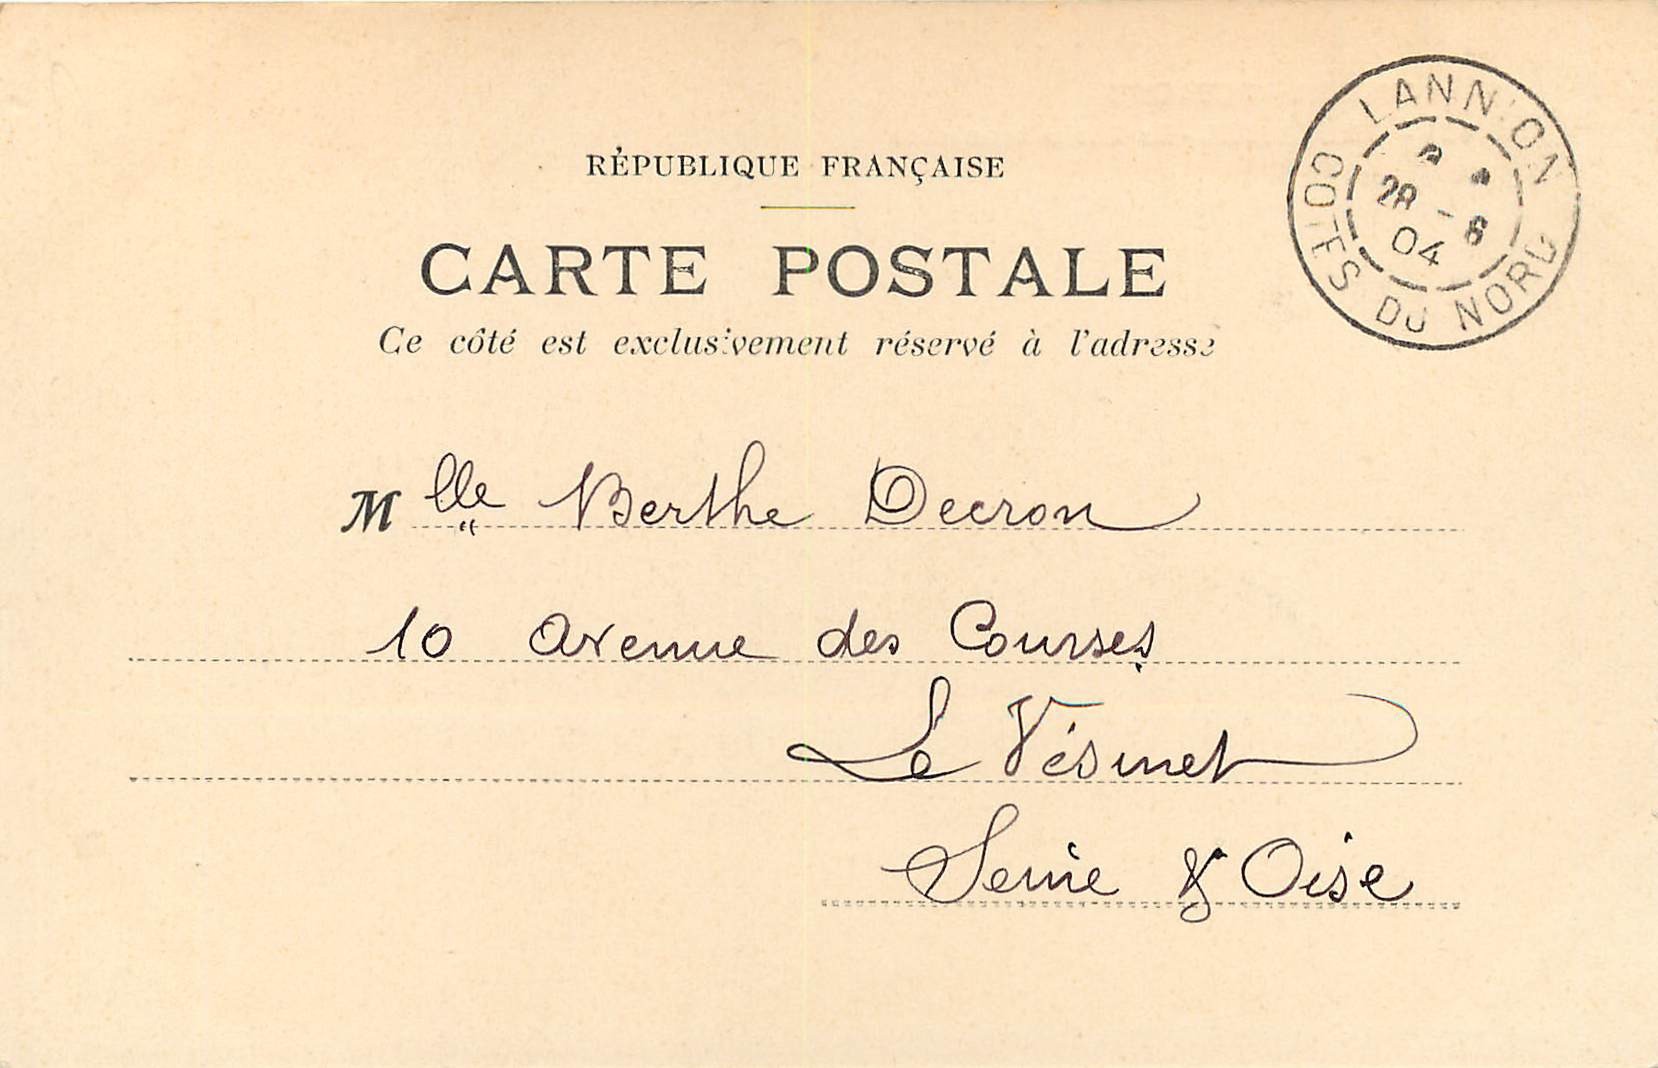 RÉPUBLIQUE FRANÇAISE
CARTE POSTALE
Ce côté est exclusivement réservé à l'adresse
LANNION
28 - 8
04
COTES DU NORD
Mlle Berthe Decron
10 avenue des Courses
Le Vésinet
Seine & Oise